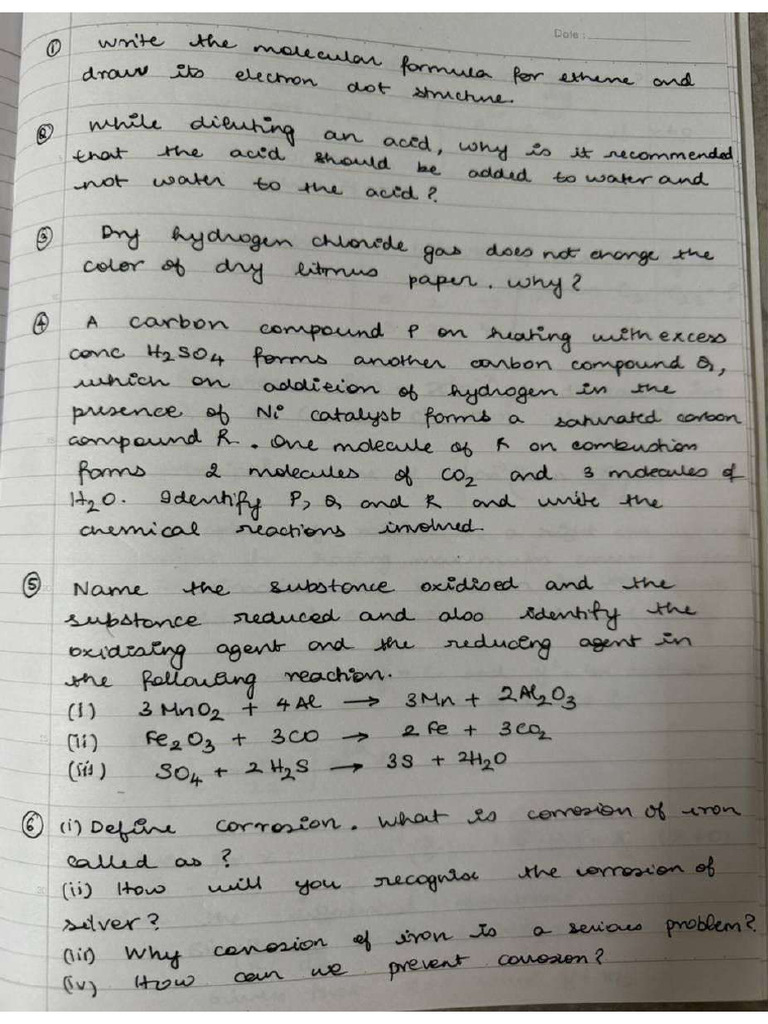 Date :
① Write the molecular formula for ethene and
draw its electron dot structure.
② While diluting an acid, why is it recommended
that the acid should be added to water and
not water to the acid?
③ Dry hydrogen chloride gas does not change the
color of dry litmus paper. Why?
④ A carbon compound P on heating with excess
conc H₂SO₄ forms another carbon compound Q,
which on addition of hydrogen in the
presence of Ni catalyst forms a saturated carbon
compound R. One molecule of R on combustion
forms 2 molecules of CO₂ and 3 molecules of
H₂O. Identify P, Q and R and write the
chemical reactions involved.
⑤ Name the substance oxidised and the
substance reduced and also identify the
oxidising agent and the reducing agent in
the following reaction.
(i) 3MnO₂ + 4Al → 3Mn + 2Al₂O₃
(ii) Fe₂O₃ + 3CO → 2Fe + 3CO₂
(iii) SO₄ + 2H₂S → 3S + 2H₂O
⑥ (i) Define corrosion. What is corrosion of iron
called as?
(ii) How will you recognise the corrosion of
silver?
(iii) Why corrosion of iron is a serious problem?
(iv) How can we prevent corrosion?